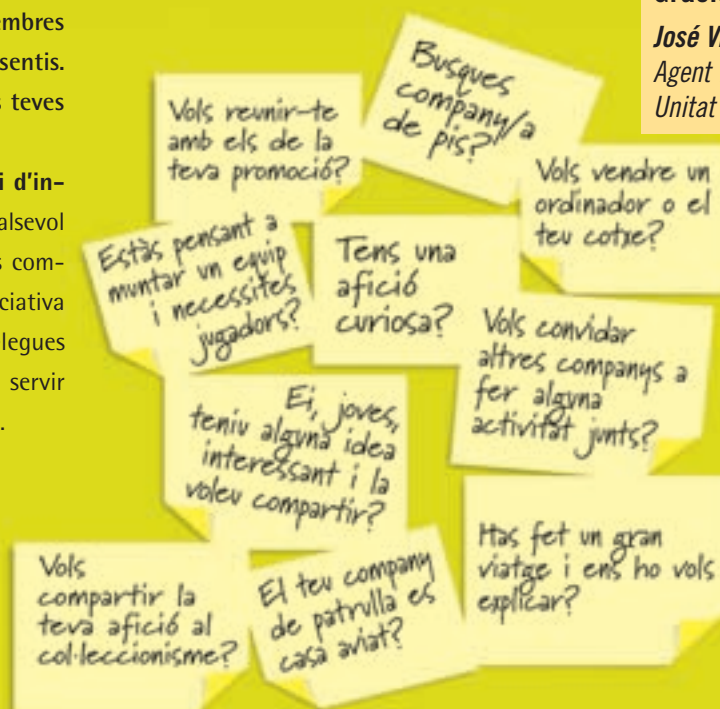 embres
sentis.
s teves
i d'in-
alsevol
s com-
ciativa
legues
servir
.
José
Agent
Unitat
Busques
company/a
de pis?
Vols reunir-te
amb els de la
teva promoció?
Vols vendre un
ordinador o el
teu cotxe?
Estàs pensant a
muntar un equip
i necessites
jugadors?
Tens una
afició
curiosa?
Vols convidar
altres companys a
fer alguna
activitat junts?
Ei, joves,
teniu alguna idea
interessant i la
voleu compartir?
Has fet un gran
viatge i ens ho vols
explicar?
Vols
compartir la
teva afició al
col·leccionisme?
El teu company
de patrulla es
casa aviat?